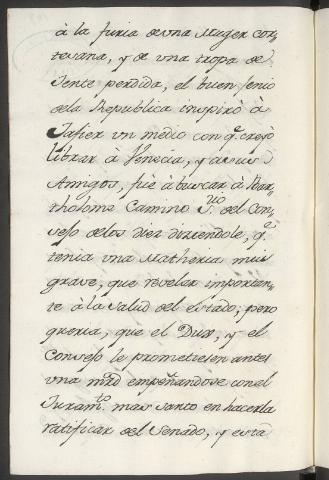 à la furia de una Muger cor-
tesana, y de una tropa de
Jente perdida, el buen Jenio
dela Republica inspirò à
Jafier un medio con q.e creyò
librar à Venecia, y a sus
Amigos, fuè à buscar à Bar-
tholome Camino S.rio del Con-
sejo delos diez diziendole, q.e
tenia una Matheria mui
grave, que revelar importan-
te à la salud del estado, pero
queria, que el Dux, y el
Consejo le prometiesen antes
una mrd empeñandose con el
Juram.to mas santo en hacerla
ratificar del Senado, y esta